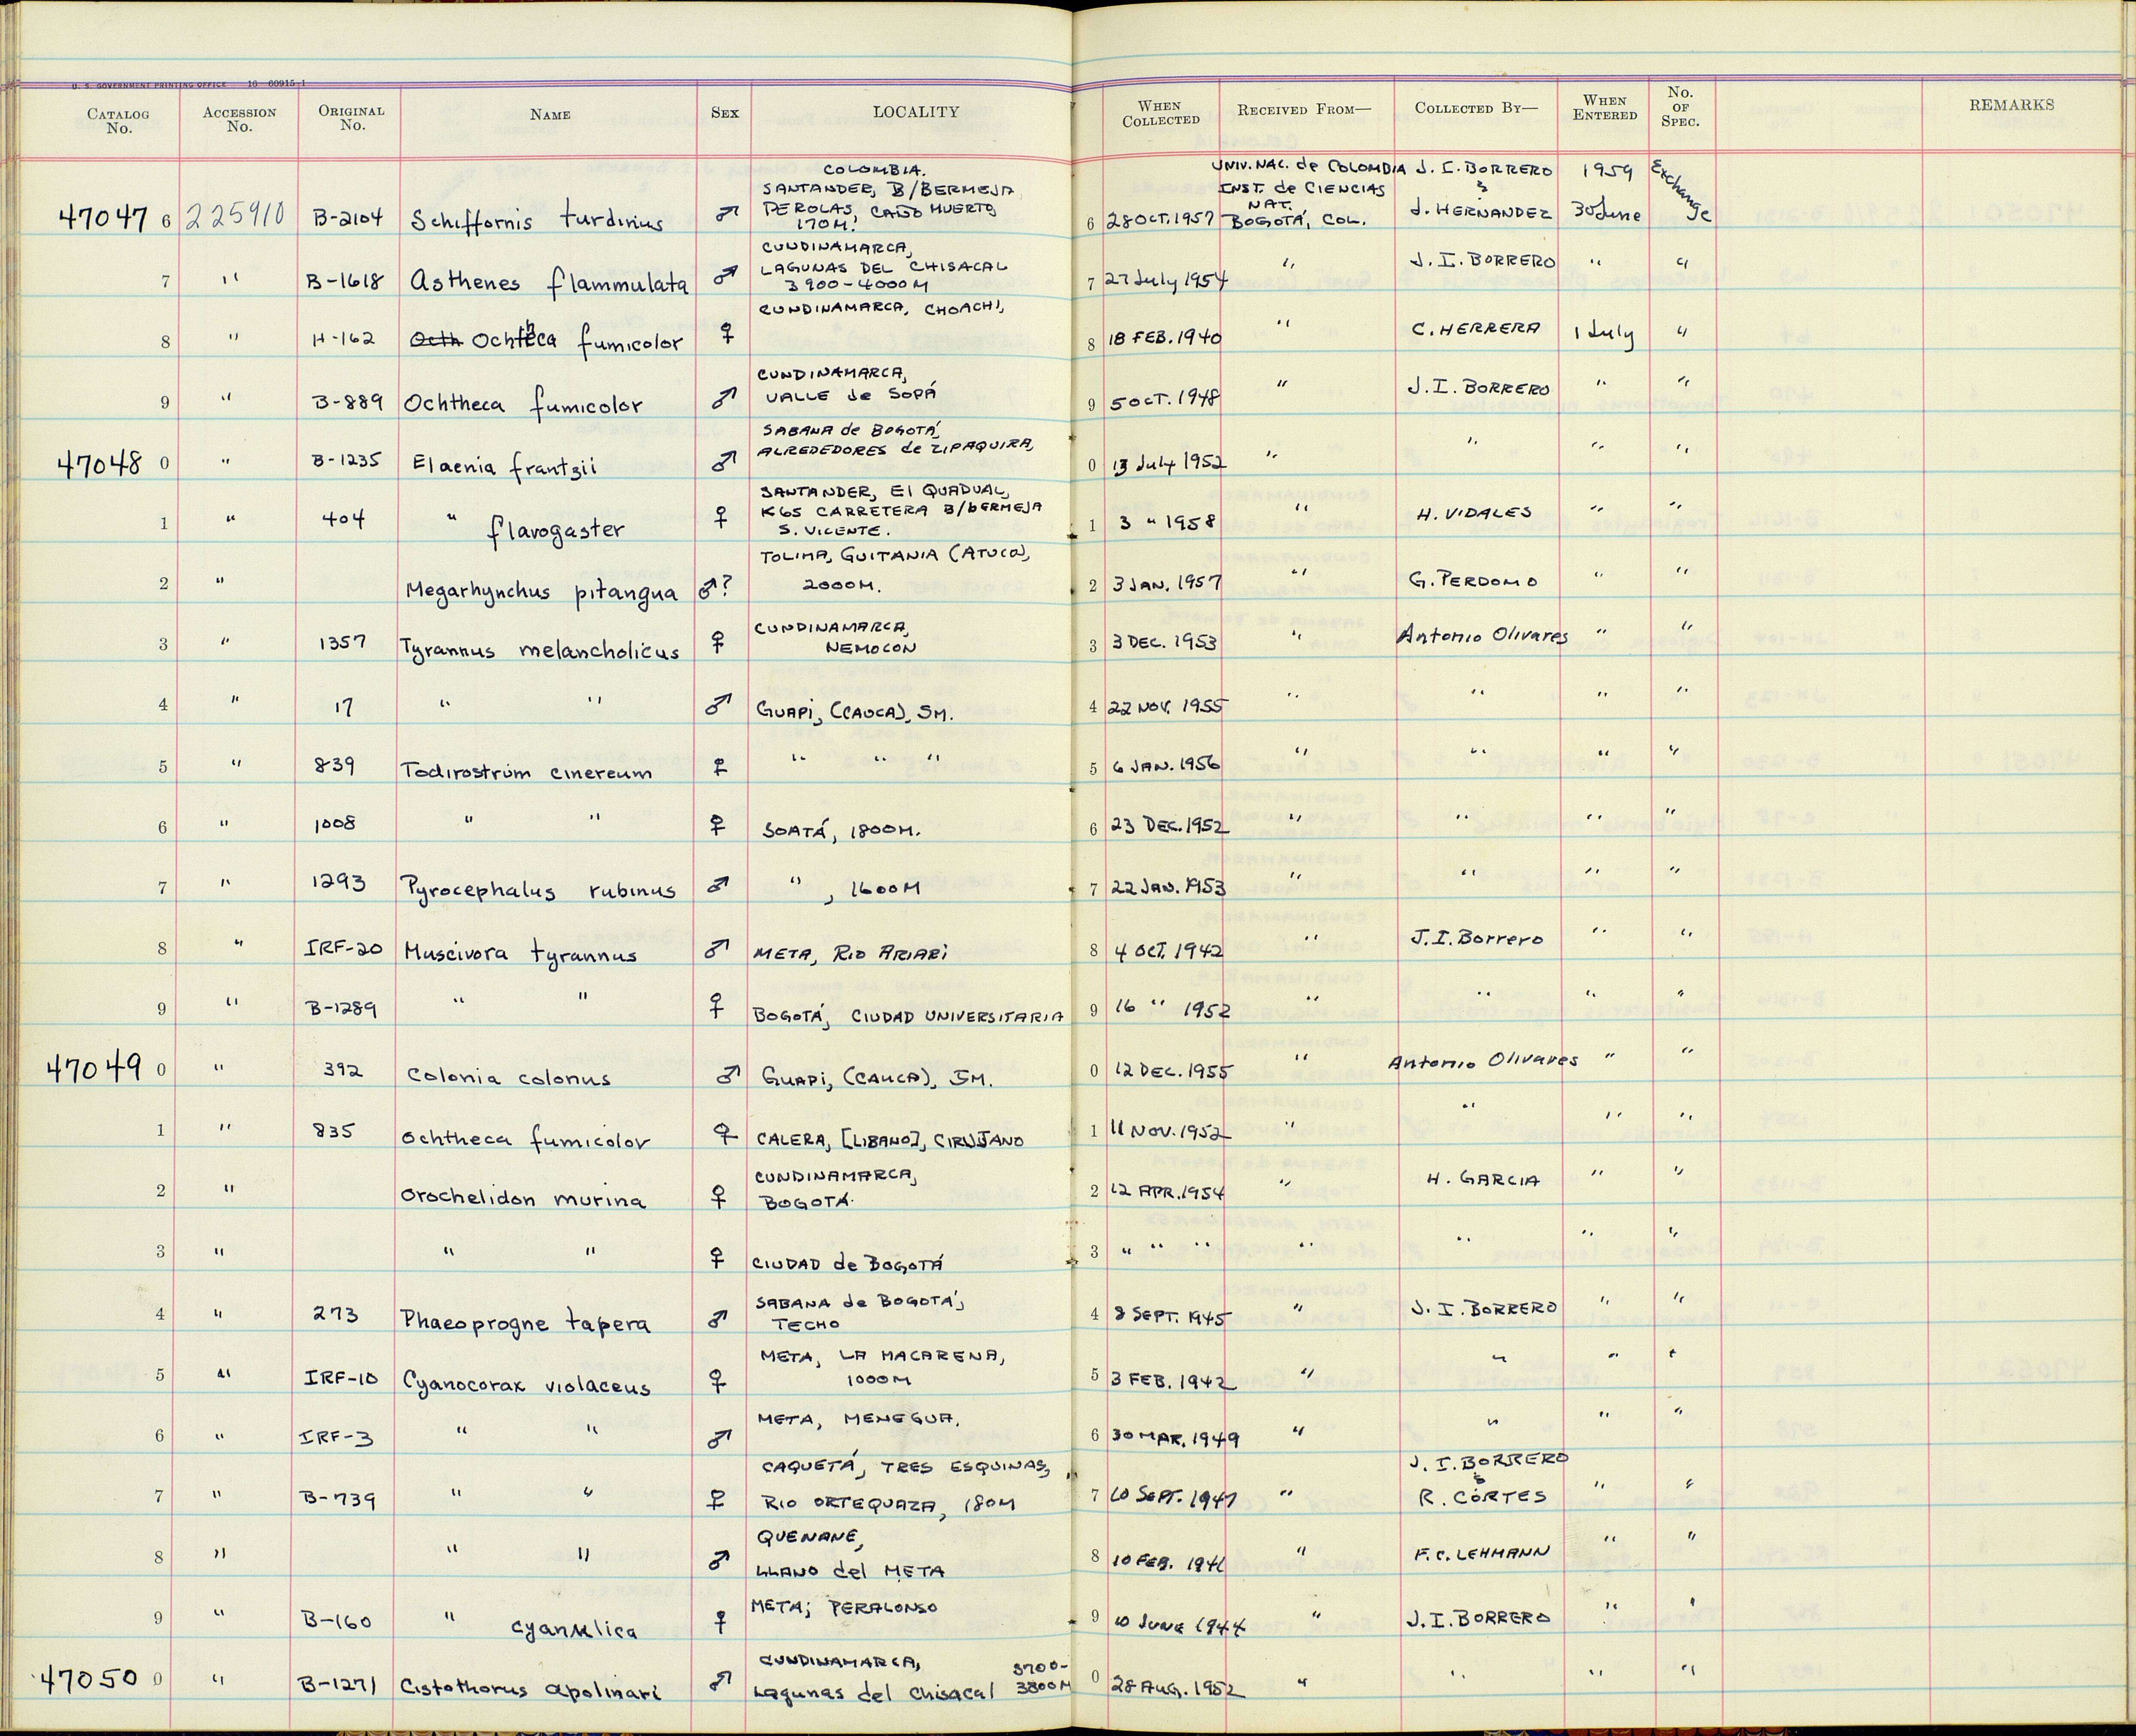 U. S. GOVERNMENT PRINTING OFFICE 16—60915-1
CATALOG No. ACCESSION No. ORIGINAL No. NAME SEX LOCALITY WHEN COLLECTED RECEIVED FROM— COLLECTED BY— WHEN ENTERED No. OF SPEC. REMARKS
COLOMBIA. UNIV. NAC. de COLOMBIA J. I. BORRERO 1959 Exchange
SANTANDER, B/BERMEJA INST. de CIENCIAS &
47047 6 225910 B-2104 Schiffornis turdinus ♂ PEROLAS, CAÑO MUERTO 6 28 OCT. 1957 NAT. J. HERNANDEZ 30 June
170M. BOGOTÁ, COL.
CUNDINAMARCA,
7 " B-1618 Asthenes flammulata ♂ LAGUNAS DEL CHISACAL 7 27 July 1954 " J. I. BORRERO " "
3900-4000M
8 " H-162 Octh Ochtheca fumicolor ♀ CUNDINAMARCA, CHOACHI, 8 18 FEB. 1940 " C. HERRERA 1 July "
CUNDINAMARCA,
9 " B-889 Ochtheca fumicolor ♂ VALLE de SOPÁ 9 5 OCT. 1948 " J. I. BORRERO " "
SABANA de BOGOTÁ,
47048 0 " B-1235 Elaenia frantzii ♂ ALREDEDORES de ZIPAQUIRA, 0 13 July 1952 " " " "
SANTANDER, El QUADUAL,
1 " 404 " flavogaster ♀ K65 CARRETERA B/bERMEJA 1 3 " 1958 " H. VIDALES " "
S. VICENTE.
TOLIMA, GUITANIA (ATUCO),
2 " Megarhynchus pitangua ♂? 2000M. 2 3 JAN. 1957 " G. PERDOMO " "
CUNDINAMARCA,
3 " 1357 Tyrannus melancholicus ♀ NEMOCON 3 3 DEC. 1953 " Antonio Olivares " "
4 " 17 " " ♂ GUAPI, (CAUCA), 5M. 4 22 NOV. 1955 " " " "
5 " 839 Todirostrum cinereum ♀ " " " 5 6 JAN. 1956 " " " "
6 " 1008 " " ♀ SOATÁ, 1800M. 6 23 DEC. 1952 " " " "
7 " 1293 Pyrocephalus rubinus ♂ " , 1600M 7 22 JAN. 1953 " " " "
8 " IRF-20 Muscivora tyrannus ♂ META, RIO ARIARI 8 4 OCT. 1942 " J. I. Borrero " "
9 " B-1289 " " ♀ BOGOTÁ, CIUDAD UNIVERSITARIA 9 16 " 1952 " " " "
47049 0 " 392 Colonia colonus ♂ GUAPI, (CAUCA), 5M. 0 12 DEC. 1955 " Antonio Olivares " "
1 " 835 Ochtheca fumicolor ♀ CALERA, [LIBANO], CIRUJANO 1 11 NOV. 1952 " " " "
CUNDINAMARCA,
2 " Orochelidon murina ♀ BOGOTÁ. 2 12 APR. 1954 " H. GARCIA " "
3 " " " ♀ CIUDAD de BOGOTÁ 3 " " " " " " "
SABANA de BOGOTÁ,
4 " 273 Phaeoprogne tapera ♂ TECHO 4 8 SEPT. 1945 " J. I. BORRERO " "
META, LA MACARENA,
5 " IRF-10 Cyanocorax violaceus ♀ 1000M 5 3 FEB. 1942 " " " "
META, MENEGUA,
6 " IRF-3 " " ♂ 6 30 MAR. 1949 " " " "
CAQUETÁ, TRES ESQUINAS, J. I. BORRERO
7 " B-739 " " ♀ RIO ORTEQUAZA, 180M 7 10 SEPT. 1947 " & R. CORTES " "
QUENANE,
8 " " " ♂ LLANO del META 8 10 FEB. 1941 " F. C. LEHMANN " "
META; PERALONSO
9 " B-160 " cyanulica ♀ 9 10 JUNE 1944 " J. I. BORRERO " "
CUNDINAMARCA, 3700-
47050 0 " B-1271 Cistothorus apolinari ♂ Lagunas del Chisacal 3800M 0 28 AUG. 1952 " " " "